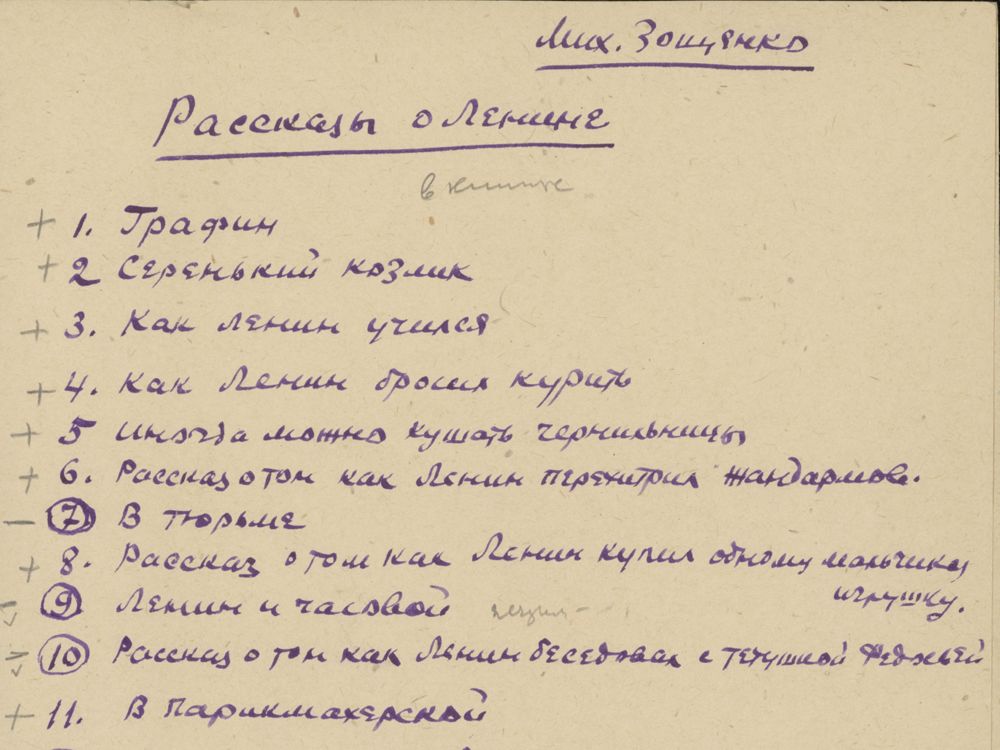 Мих. Зощенко
Рассказы о Ленине
в книжке
+ 1. Графин
+ 2 Серенький козлик
+ 3. Как Ленин учился
+ 4. Как Ленин бросил курить
+ 5 Иногда можно кушать чернильницы
+ 6. Рассказ о том как Ленин перехитрил жандармов.
— 7 В тюрьме
+ 8. Рассказ о том как Ленин купил одному мальчику
игрушку.
9 Ленин и часовой
10 Рассказ о том как Ленин беседовал с тетушкой Федосьей
+ 11. В парикмахерской